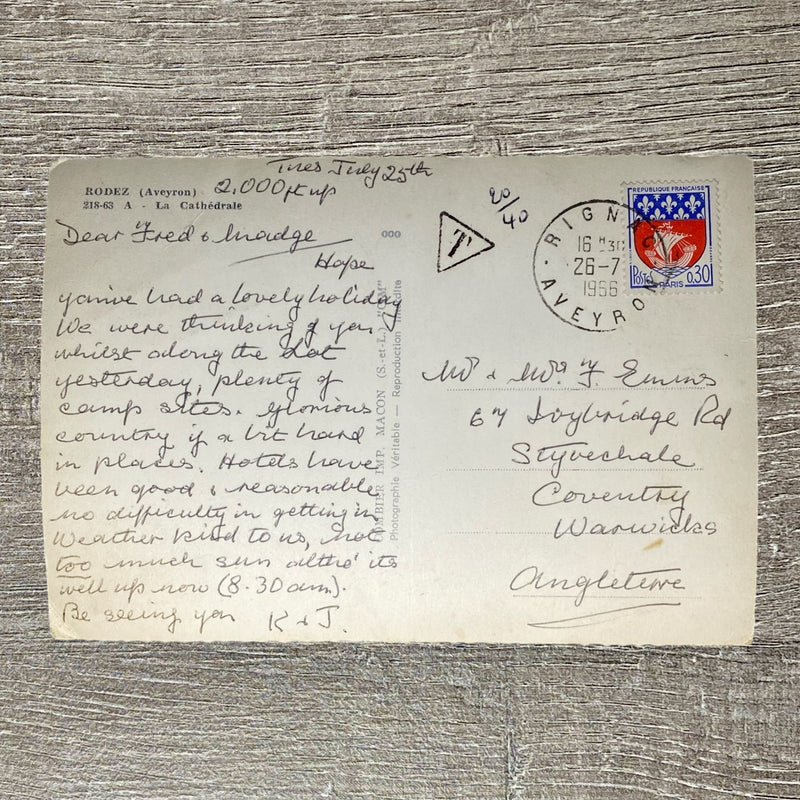 Tues July 25th
2,000 ft up
RODEZ (Aveyron)
218-63 A - La Cathédrale
Dear Fred & Madge
Hope
you've had a lovely holiday
We were thinking of you
whilst along the Lot
yesterday, plenty of
camp sites. Glorious
country if a bit hard
in places. Hotels have
been good & reasonable
no difficulty in getting in,
Weather kind to us, not
too much sun altho' its
well up now (8.30am).
Be seeing you K & J.
000
COMBIER IMP. MACON (S.-et-L.) "CIM"
Photographie Véritable — Reproduction Interdite
T
20/40
RIGNAC
16 H 30
26-7
1966
AVEYRON
REPUBLIQUE FRANÇAISE
POSTES 0,30
PARIS
Mr & Mrs F. Emms
67 Ivybridge Rd
Styvechale
Coventry
Warwicks
Angleterre